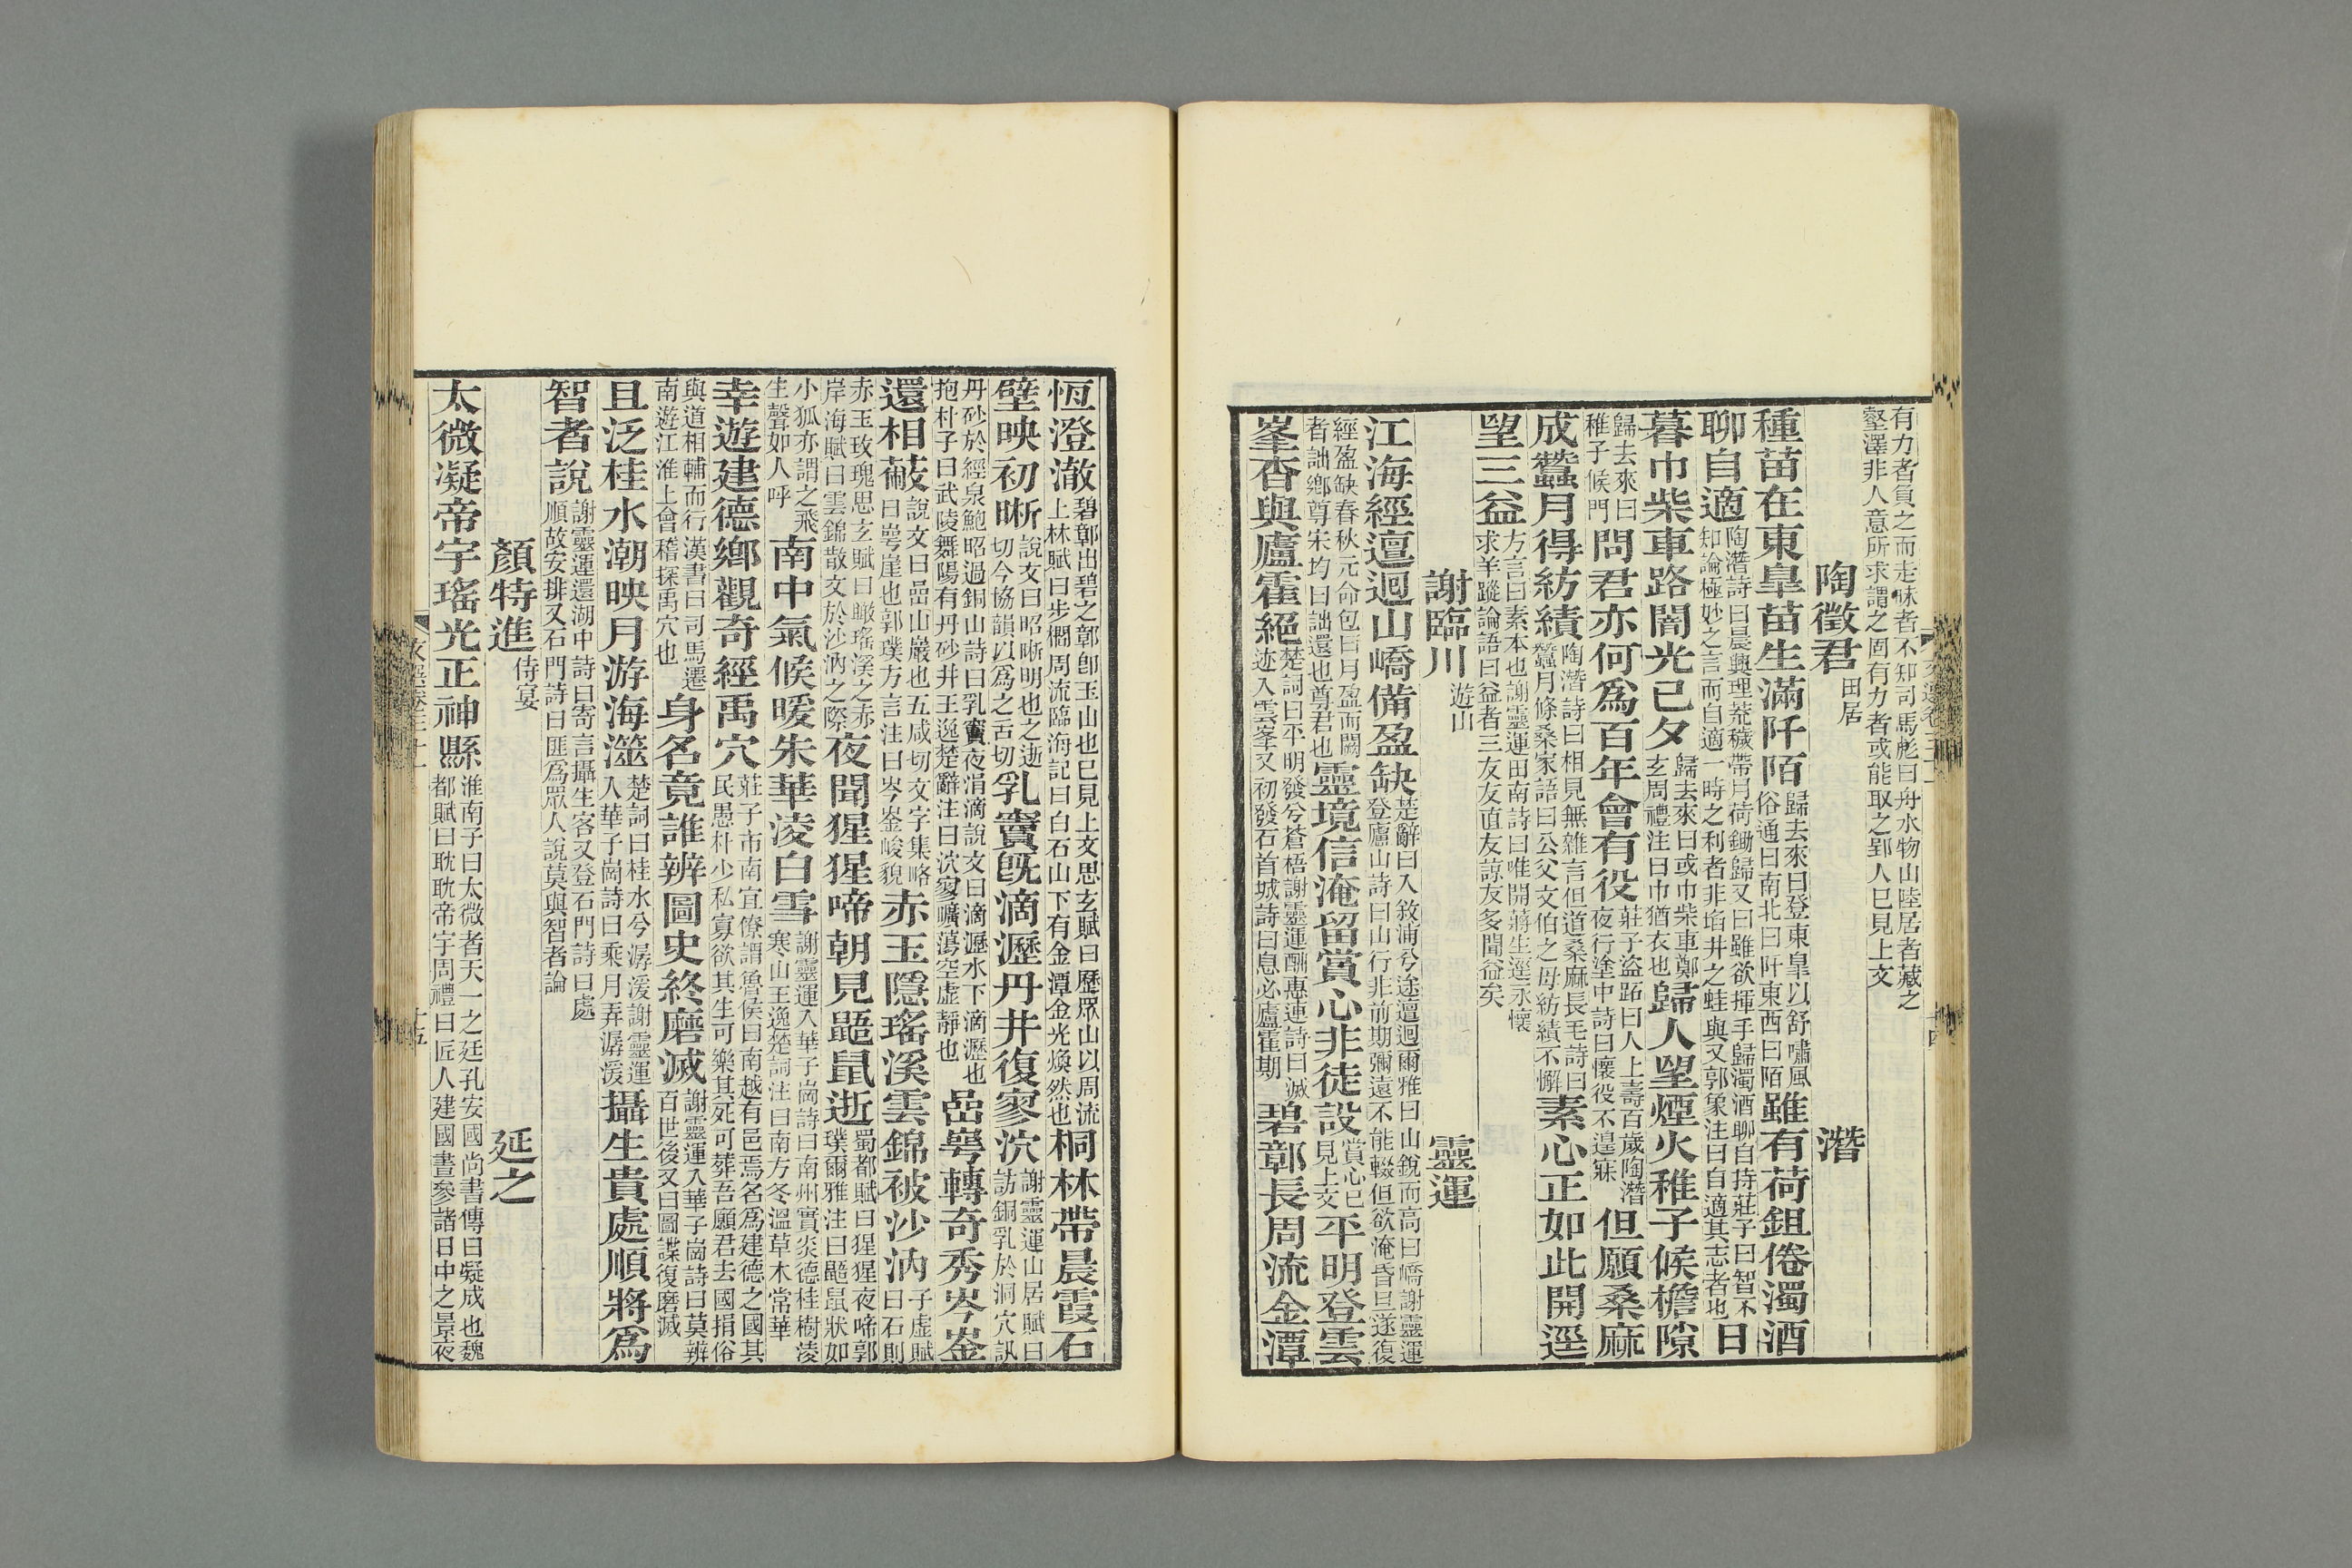 有力者負之而走昧者不知司馬彪曰舟水物山陸居者藏之
壑澤非人意所求謂之固有力者或能取之郢人已見上文
陶徵君田居　潛
種苗在東皐苗生滿阡陌歸去來曰登東皐以舒嘯風俗通曰南北曰阡東西曰陌雖有荷鉏倦濁酒
聊自適陶潛詩曰晨興理荒穢帶月荷鋤歸又曰雖欲揮手歸濁酒聊自持莊子曰智不知論極妙之言而自適一時之利者非埳井之蛙與又郭象注曰自適其志者也日
暮巾柴車路闇光已夕歸去來曰或巾柴車鄭玄周禮注曰巾猶衣也歸人望煙火稚子候檐隙
歸去來曰稚子候門問君亦何爲百年會有役莊子盜跖曰人上壽百歲陶潛夜行塗中詩曰懷役不遑寐但願桑麻
成蠶月得紡績陶潛詩曰相見無雜言但道桑麻長毛詩曰蠶月條桑家語曰公父文伯之母紡績不懈素心正如此開逕
望三益方言曰素本也謝靈運田南詩曰唯開蔣生逕永懷求羊蹤論語曰益者三友友直友諒友多聞益矣
謝臨川遊山　靈運
江海經邅迴山嶠備盈缺楚辭曰入敘浦兮邅迴爾雅曰山銳而高曰嶠謝靈運登廬山詩曰山行非前期彌遠不能輟但欲淹昏旦遂復
經盈缺春秋元命包曰月盈而闕者詘鄉尊宋均曰詘還也尊君也靈境信淹留賞心非徒設賞心已見上文平明登雲
峯杳與廬霍絕楚詞曰平明發兮蒼梧謝靈運酬惠連詩曰滅迹入雲峯又初發石首城詩曰息必廬霍期碧鄣長周流金潭
恆澄澈碧鄣出碧之鄣卽玉山也已見上文思玄賦曰歷眾山以周流上林賦曰步櫩周流臨海記曰白石山下有金潭金光煥然也桐林帶晨霞石
壁映初晰說文曰昭晰明也之逝切今協韻以爲之舌切乳竇旣滴瀝丹井復寥泬謝靈運山居賦曰訪銅乳於洞穴訊
丹砂於經泉鮑昭過銅山詩曰乳竇夜涓滴說文曰滴瀝水下滴瀝也抱朴子曰武陵舞陽有丹砂井王逸楚辭注曰泬寥曠蕩空虛靜也嵒崿轉奇秀岑崟
還相蔽說文曰嵒山巖也五咸切文字集略曰崿崖也郭璞方言注曰岑崟峻貌赤玉隱瑤溪雲錦被沙汭子虛賦曰石則
赤玉玫瑰思玄賦曰瞰瑤溪之赤岸海賦曰雲錦散文於沙汭之際夜聞猩猩啼朝見鼯鼠逝蜀都賦曰猩猩夜啼郭璞爾雅注曰鼯鼠狀如
小狐亦謂之飛生聲如人呼南中氣候暖朱華淩白雪謝靈運入華子崗詩曰南州實炎德桂樹淩寒山王逸楚詞注曰南方冬溫草木常華
幸遊建德鄉觀奇經禹穴莊子市南宜僚謂魯侯曰南越有邑焉名爲建德之國其民愚朴少私寡欲其生可樂其死可葬吾願君去國捐俗
與道相輔而行漢書曰司馬遷南遊江淮上會稽探禹穴也身名竟誰辨圖史終磨滅謝靈運入華子崗詩曰莫辨百世後又曰圖諜復磨滅
且泛桂水潮映月游海澨楚詞曰桂水兮潺湲謝靈運入華子崗詩曰乘月弄潺湲攝生貴處順將爲
智者說謝靈運還湖中詩曰寄言攝生客又登石門詩曰處順故安排又石門詩曰匪爲眾人說莫與智者論
顏特進侍宴　延之
太微凝帝宇瑤光正神縣淮南子曰太微者天一之廷孔安國尚書傳曰凝成也魏都賦曰耽耽帝宇周禮曰匠人建國晝參諸日中之景夜